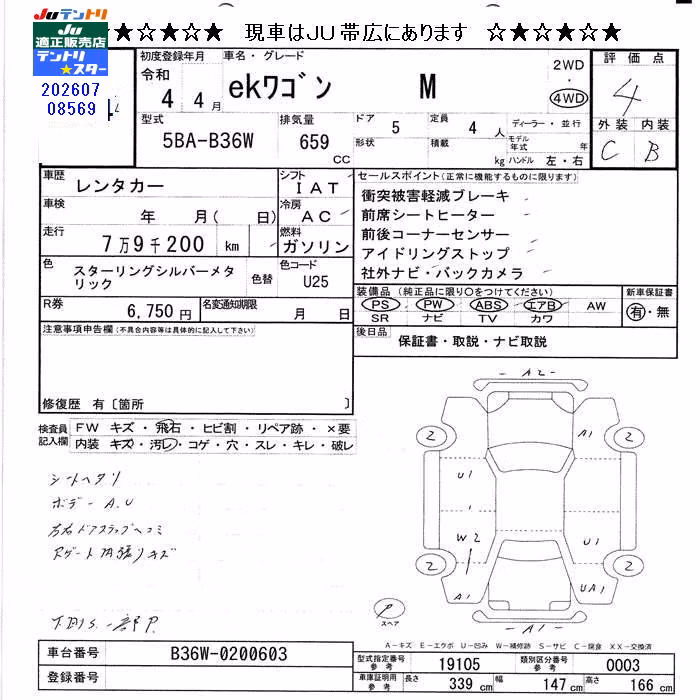 JUテントリ
JU
適正販売店
テントリ
★スター
★☆★☆★ 現車はJU帯広にあります ☆★☆★☆★
202607
08569
初度登録年月
令和
4 4月
車名・グレード
ekワゴン M
2WD
・
4WD
評価点
4
外装 内装
C B
型式
5BA-B36W
排気量
659
CC
ドア
5
定員
4人
ディーラー・並行
形状
積載
kg
モデル年式
年
ハンドル 左・右
車歴
レンタカー
シフト
IAT
車検
年 月( 日)
冷房
AC
走行
7万9千200 km
燃料
ガソリン
色
スターリングシルバーメタリック
色替
色コード
U25
R券
6,750円
名変通知期限
月 日
セールスポイント(正常に機能するものに限ります)
衝突被害軽減ブレーキ
前席シートヒーター
前後コーナーセンサー
アイドリングストップ
社外ナビ・バックカメラ
装備品(純正品に限り〇をつけてください)
PS PW ABS エアB AW
SR ナビ TV カワ
新車保証書
有・無
後日品
保証書・取説・ナビ取説
注意事項申告欄(不具合内容等は具体的に記入して下さい)
修復歴 有〔箇所 〕
検査員記入欄
FW キズ・飛石・ヒビ割・リペア跡・×要
内装 キズ・汚レ・コゲ・穴・スレ・キレ・破レ
シートヘタリ
ボデー A.U
左右ドアステップヘコミ
Rゲート内張りキズ
下回りS. 一部P.
A2
2
A1
2
U1
1
W2
U1
2
2
A1
UA1
A1
P
スペア
A-キズ E-エクボ U-凹み W-補修跡 S-サビ C-腐食 XX-交換済
車台番号
B36W-0200603
登録番号
型式指定番号
参考
19105
類別区分番号
参考
0003
車庫証明用
参考
長さ 339cm
幅 147cm
高さ 166cm